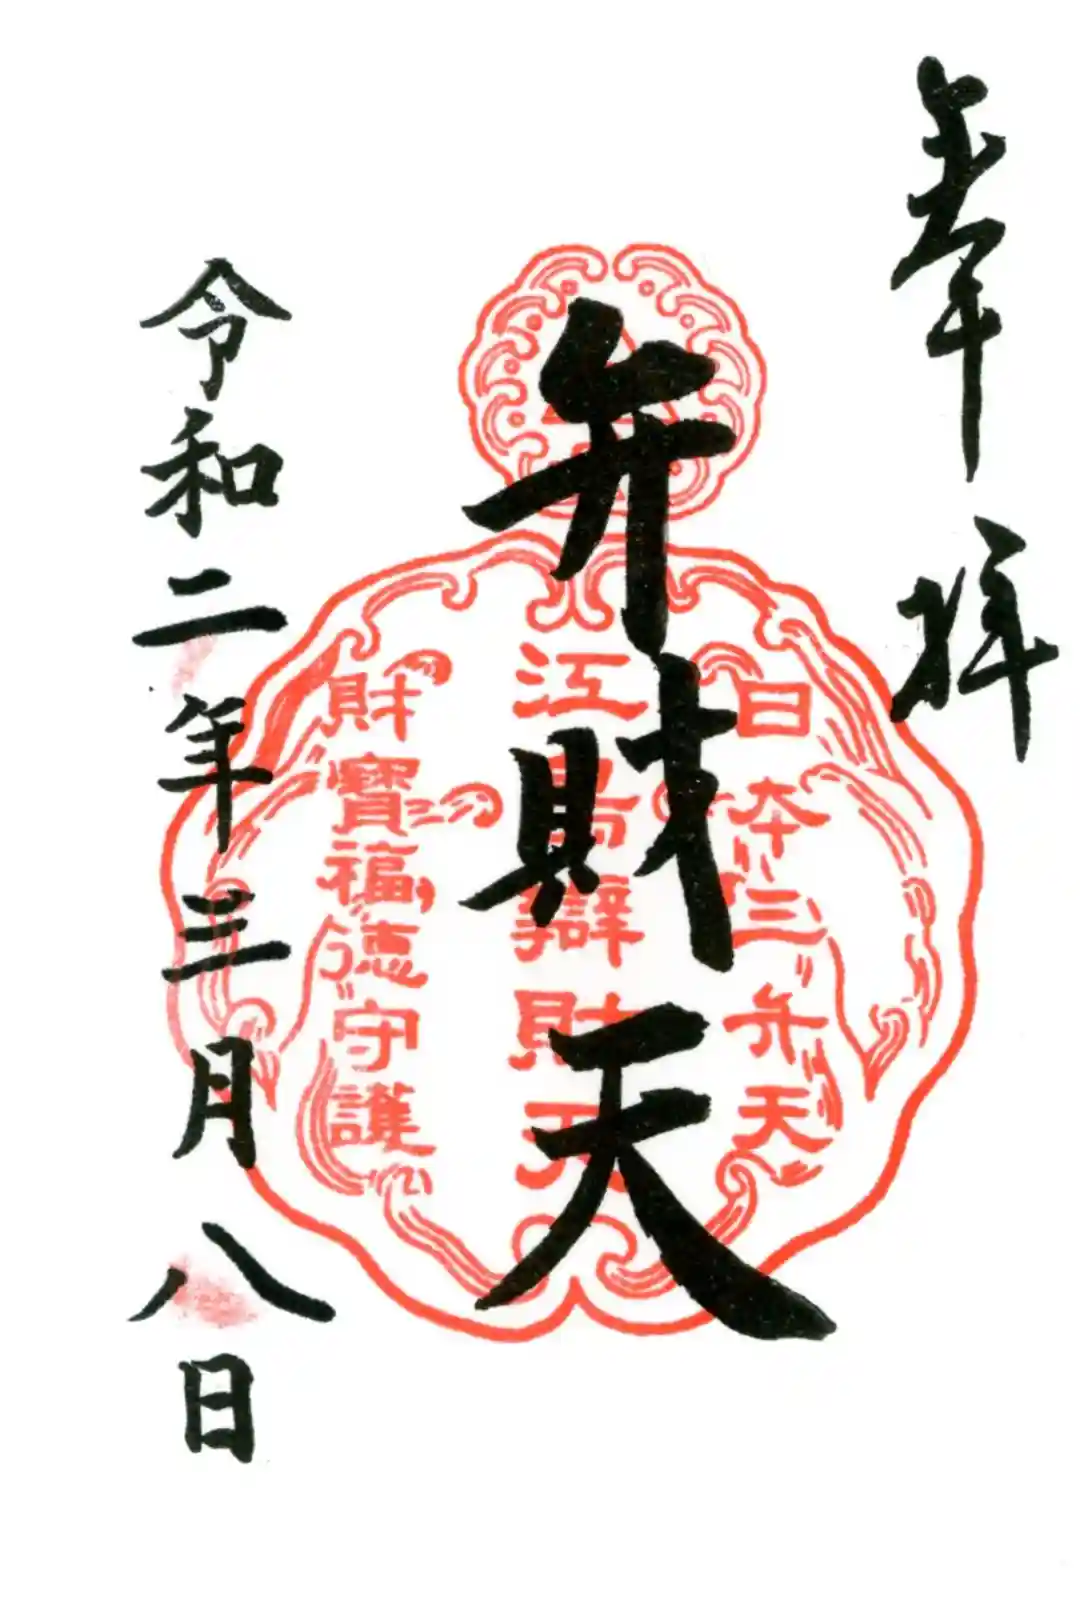 奉拝
日本三弁天
弁財天
江島辯財天
財寶福徳守護
令和二年三月八日